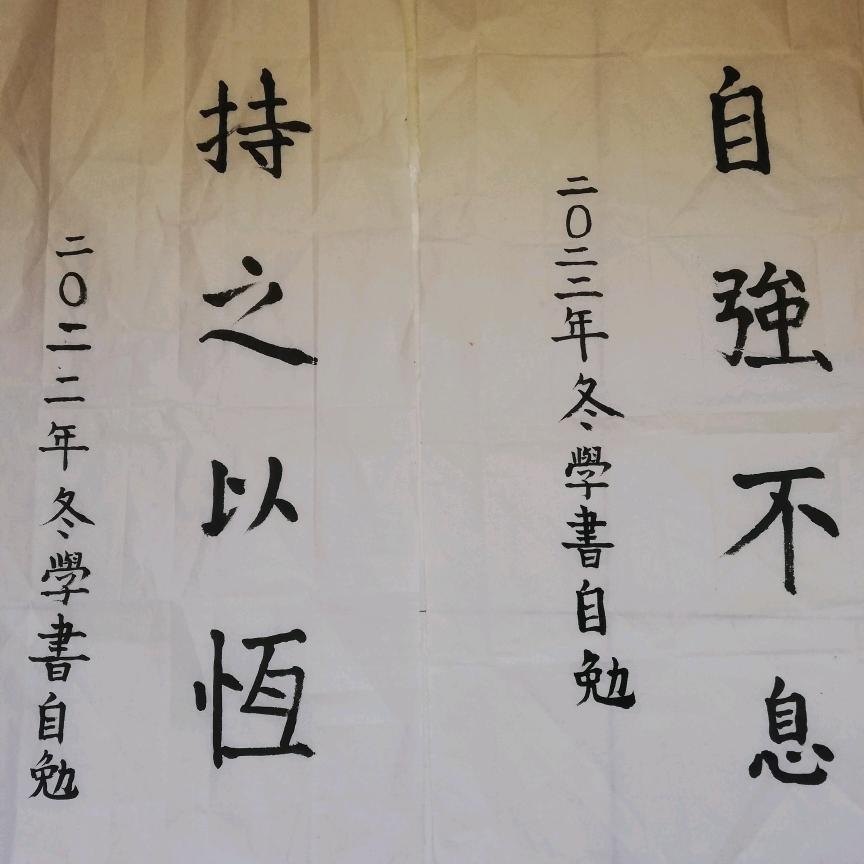 自強不息
二〇二二年冬學書自勉
持之以恆
二〇二二年冬學書自勉